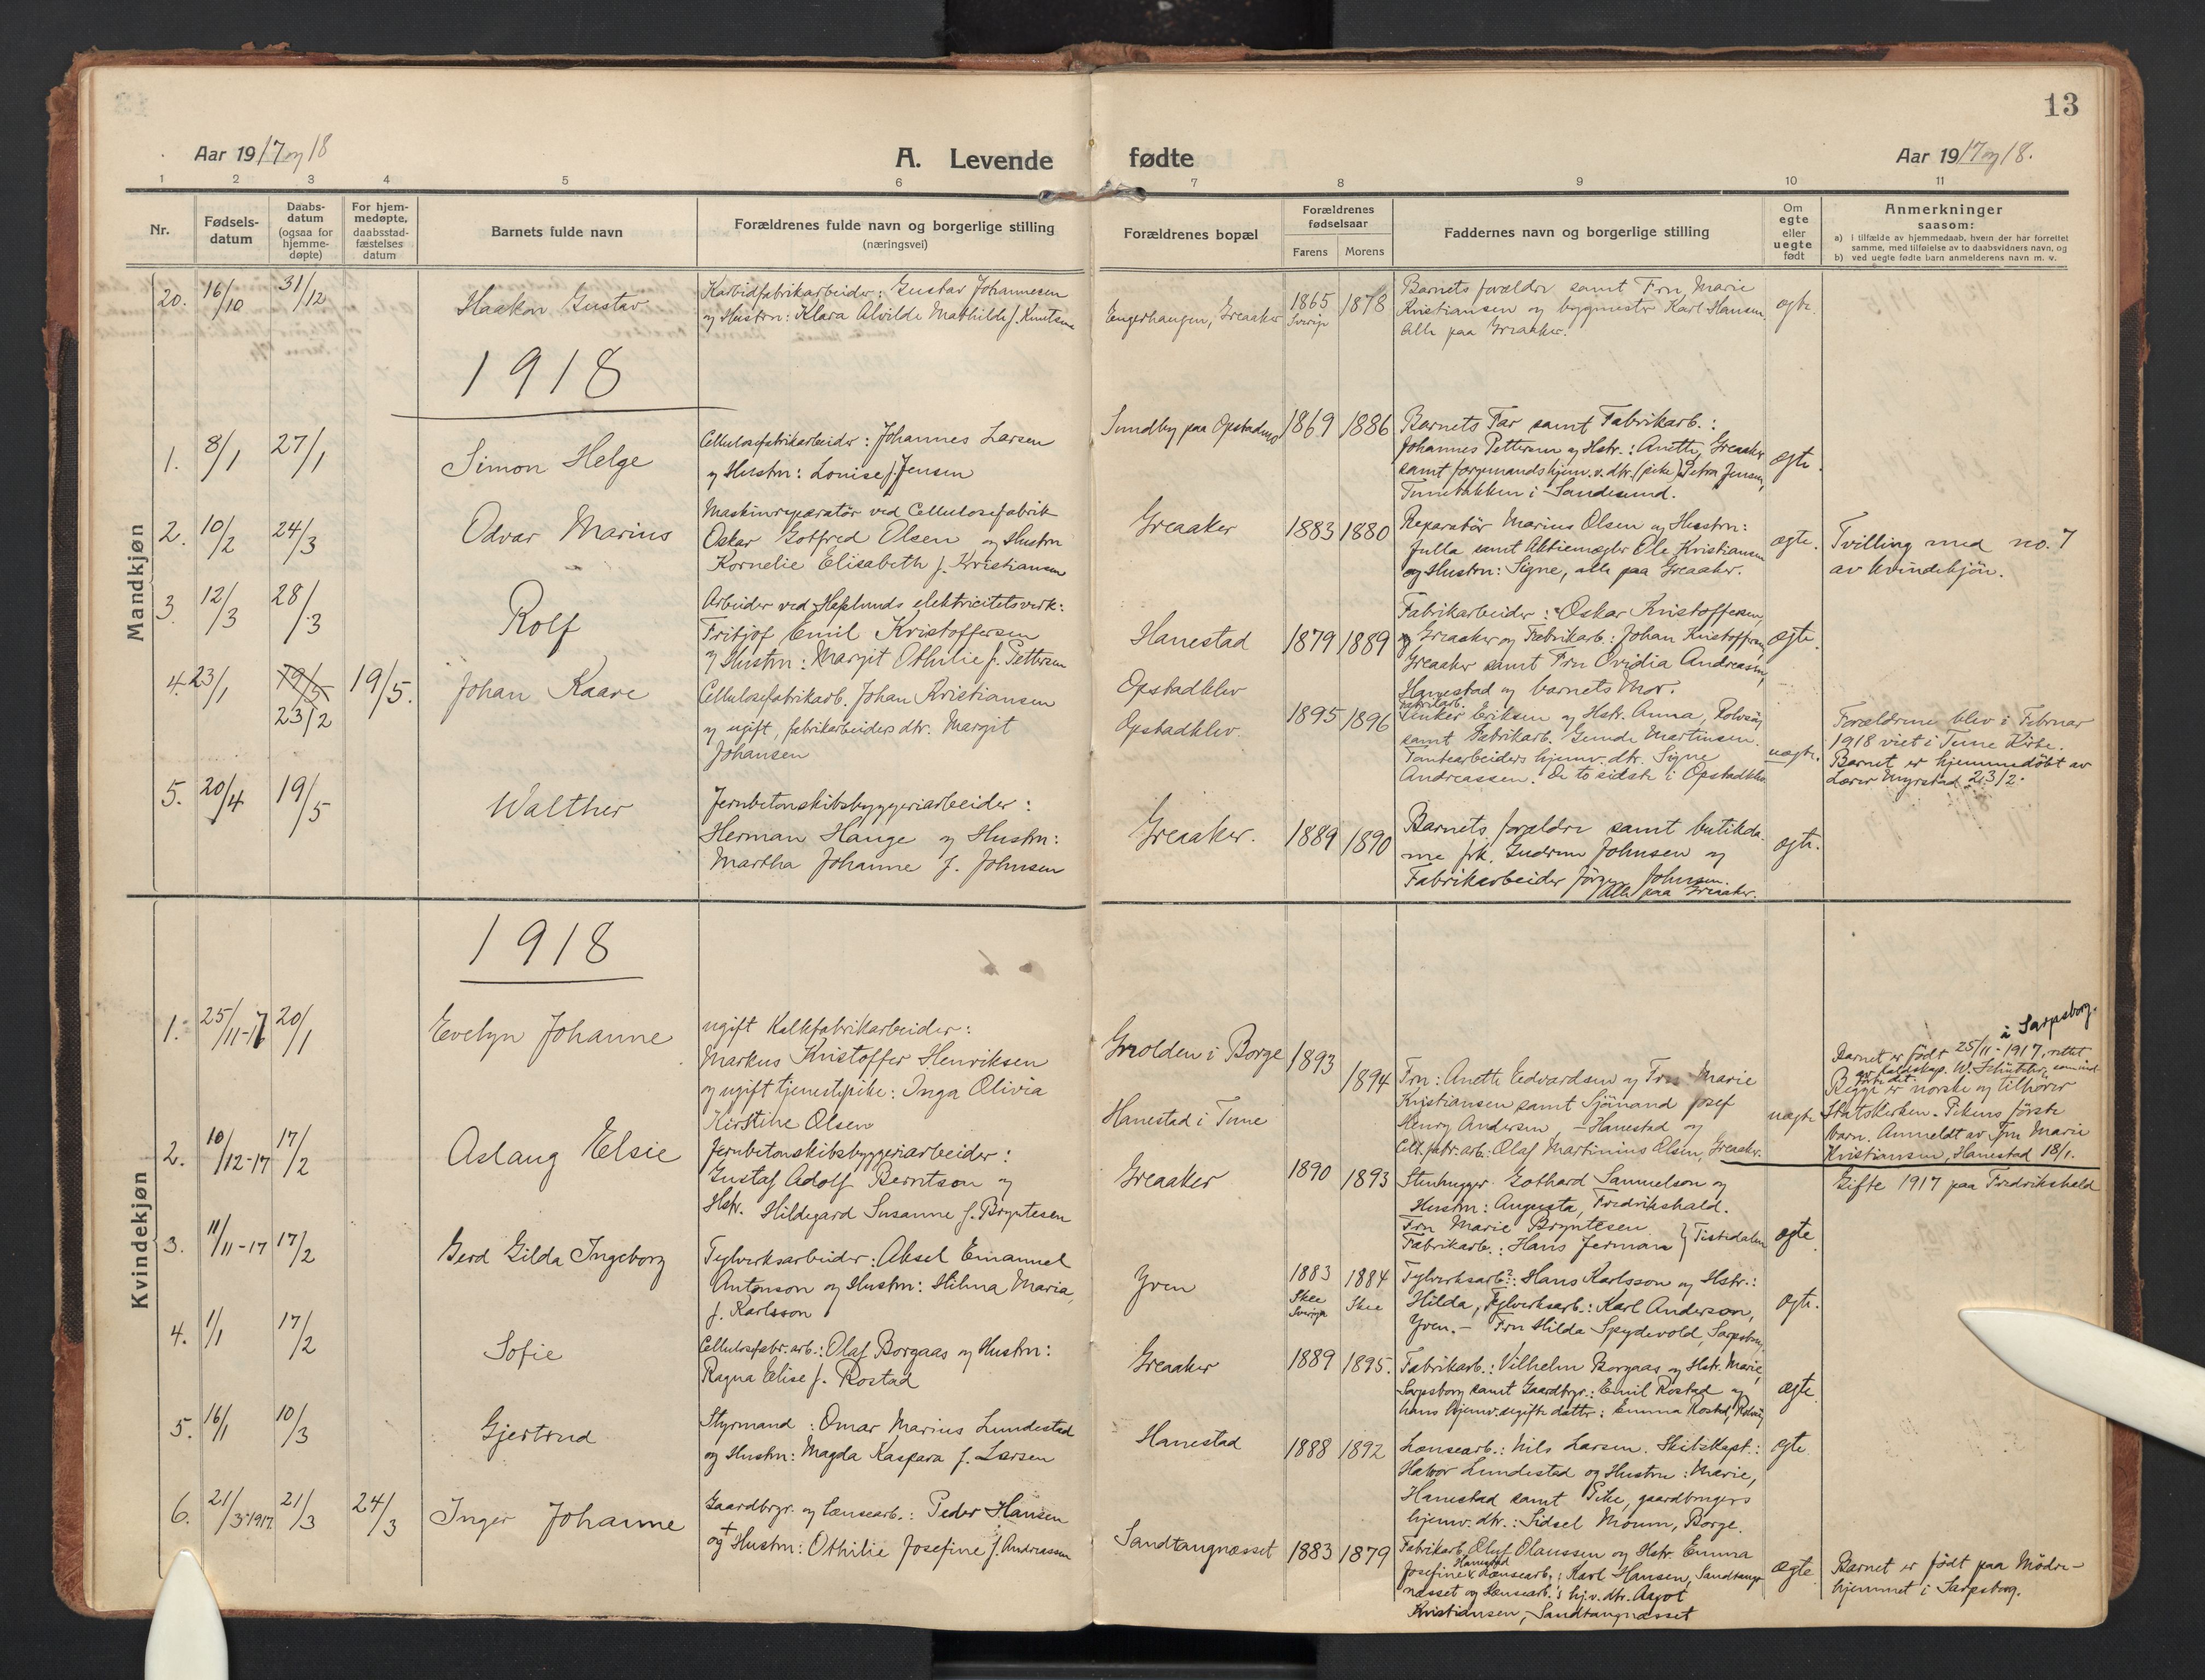 13
Aar 1917 og 18
A. Levende fødte
Aar 1917 og 18.
1 2 3 4 5 6 7 8 9 10 11
Nr.
Fødsels-
datum
Daabs-
datum
(ogsaa for
hjemme-
døpte)
For hjem-
medøpte,
daabsstad-
fæstelses
datum
Barnets fulde navn
Forældrenes fulde navn og borgerlige stilling
(næringsvei)
Forældrenes bopæl
Forældrenes
fødselsaar
Farens Morens
Faddernes navn og borgerlige stilling
Om
egte
eller
uegte
født
Anmerkninger
saasom:
a) i tilfælde av hjemmedaab, hvem der har forrettet
samme, med tilføielse av to daabsvidners navn, og
b) ved uegte fødte barn anmelderens navn m. v.
Mandkjøn
20. 16/10 31/12
Haakon Gustav
Karbidfabrikarbeider: Gustav Johannesen
og Hustru: Klara Alvilde Mathilde f. Knutsen
Engerhaugen, Greaaker
1865
Sverige
1878
Barnets forældre samt Fru Marie
Kristiansen og bygmester Karl Hansen.
Alle paa Greaaker.
egte.
1918
1. 8/1 27/1
Simon Helge
Cellulosefabrikarbeider: Johannes Larsen
og Hustru: Louise f. Jensen
Sundby paa Opstadmo
1869 1886
Barnets Far samt Fabrikarb.:
Johannes Pettersen og Hstr.: Anette, Greaaker
samt formandshjem.v. dtr. (pike) Petra Jensen,
Tunebakken i Sandesund.
egte.
2. 10/2 24/3
Odvar Marius
Maskinreparatør ved Cellulosefabrik
Oskar Gotfred Olsen og Hustru
Kornelie Elisabeth f. Kristiansen
Greaaker
1883 1880
Reparatør Marius Olsen og Hustru:
Julla samt Aktiemægler Ole Kristiansen
og Hustru: Signe, alle paa Greaaker.
egte.
Tvilling med no. 7
av kvindekjøn.
3. 12/3 28/3
Rolf
Arbeider ved Hafslunds elektricitetsverk:
Fritjof Emil Kristoffersen
og Hustru: Margit Othilie f. Pettersen
Hanestad
1879 1889
Fabrikarbeider: Oskar Kristoffersen,
Greaaker og Fabrikarb.: Johan Kristoffersen,
Greaaker samt Fru Ovidia Andreasen,
Hanestad og barnets Mor.
egte.
4. 23/1 19/5 23/2 19/5.
Johan Kaare
Cellulosefabrikarb. Johan Kristiansen
og ugift, fabrikarbeiders dtr. Margit
Johansen
Opstadklev
Opstadklev
1895 1896
Fabrikarb.
Linker Eriksen og Hstr. Anna, Rolvsøy
samt Fabrikarb. Gunde Martinsen.
Tomtearbeiders hjemv. dtr. Signe
Andreassen. De to sidste i Opstadklev
uegte.
Forældrene blev i Februar
1918 viet i Tune Kirke.
Barnet er hjemmedøbt av
Lærer Myrstad 23/2.
5. 20/4 19/5
Walther
Jernbetonskibsbyggeriarbeider:
Herman Hauge og Hustru:
Martha Johanne f. Johnsen
Greaaker.
1889 1890
Barnets forældre samt butikda-
me frk. Gudrun Johnsen og
Fabrikarbeider Jörgen Johnsen.
Alle paa Greaaker.
egte.
Kvindekjøn
1918
1. 25/11-17 20/1
Evelyn Johanne
ugift Kalkfabrikarbeider:
Markus Kristoffer Henriksen
og ugift tjenestepike: Inga Olivia
Kirstine Olsen
Grolden i Borge
Hanestad i Tune
1893
1894
Fru: Anette Edvardsen og Fru Marie
Kristiansen samt Sjömand Josef
Henry Andersen, - Hanestad og
Cell.fabr.arb.: Olaf Martinius Olsen, Greaaker.
uegte
i Sarpsborg.
Barnet er født 25/11-1917, rettet
Begge er norske og tilhører
Statskirken. Pikens første
barn. Anmeldt av Fru Marie
Kristiansen, Hanestad 18/1.
2. 10/12-17 17/2
Aslaug Elsie
Jernbetonskibsbyggeriarbeider:
Gustaf Adolf Berntson og
Hstr. Hildegard Susanne f. Bryntesen
Greaaker
1890 1893
Stenhugger Gothard Samuelson og
Hustru: Augusta, Fredrikshald.
Fru Marie Bryntesen
Fabrikarb.: Hans Jerman } Tistedalen
egte
Gifte 1917 paa Fredrikshald
3. 11/11-17 17/2
Gerd Gilda Ingeborg
Teglverksarbeider: Aksel Emanuel
Antonson og Hustru: Hilma Maria,
f. Karlsson
Yven
1883 1884
Skee Skee
Sverige
Teglverksarb.: Hans Karlsson og Hstr.:
Hilda, Teglverksarb.: Karl Anderson,
Yven. - Fru Hilda Spydevold, Sarpsborg
egte.
4. 1/1 17/2
Sofie
Cellulosefabr.arb.: Olaf Borgaas og Hustru:
Ragna Elise f. Rostad
Greaaker
1889 1895.
Fabrikarb.: Vilhelm Borgaas og Hstr. Marie,
Sarpsborg samt Gaardbrgr.: Emil Rostad og
hans hjemv. ugifte datter: Emma Rostad, Rolvsøy
egte
5. 16/1 10/3
Gjertrud
Styrmand: Omar Marius Lundestad
og Hustru: Magda Kaspara f. Larsen
Hanestad
1888 1892
Lænsearb.: Nils Larsen. Skibskapt.:
Halvor Lundestad og Hustru: Marie,
Hanestad samt Pike, gaardbrugers
hjemv. dtr.: Sidsel Moum, Borge.
egte
6. 21/3-1917 21/3 24/3
Inger Johanne
Gaardbrgr. og Lænsearb.: Peder Hansen
og + Hustru: Othilie Josefine f. Andreassen
Sandtangnæsset
1883 1879
Fabrikarb. Oluf Olaussen og Hstr. Emma
Josefine, Hanestad Lænsearb.: Karl Hansen, Sandtang-
næsset og Lænsearb.'s hj.v. dtr. Aagot
Kristiansen, Sandtangnæsset
egte
Barnet er født paa Mödre-
hjemmet i Sarpsborg.